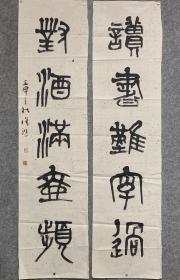 讀書難字過
對酒滿壺頻